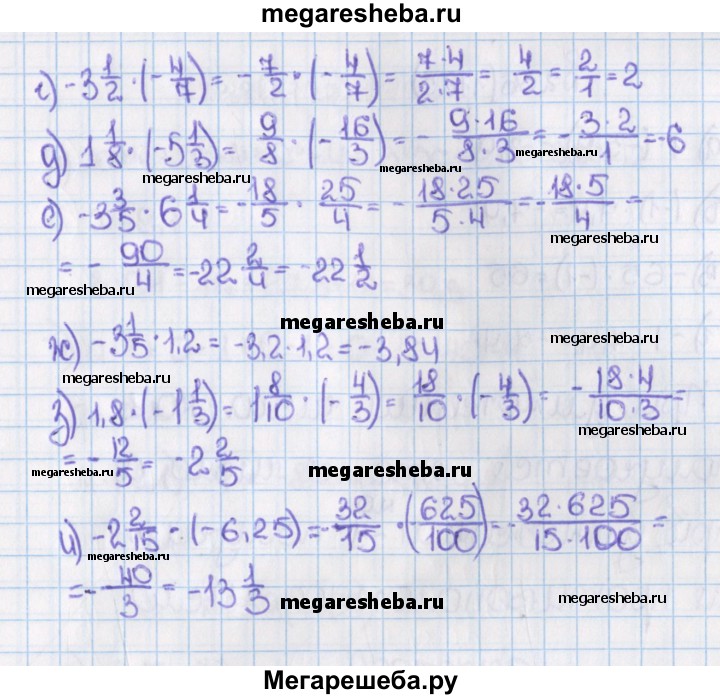 megaresheba.ru
г) -3 1/2 · (-4/7) = -7/2 · (-4/7) = 7·4/2·7 = 4/2 = 2/1 = 2
д) 1 1/8 · (-5 1/3) = 9/8 · (-16/3) = - 9·16/8·3 = - 3·2/1 = -6
megaresheba.ru megaresheba.ru megaresheba.ru
е) -3 3/5 · 6 1/4 = -18/5 · 25/4 = - 18·25/5·4 = - 18·5/4 =
megaresheba.ru
= - 90/4 = -22 2/4 = -22 1/2
megaresheba.ru megaresheba.ru
megaresheba.ru
ж) -3 1/5 · 1,2 = -3,2 · 1,2 = -3,84
megaresheba.ru
з) 1,8 · (-1 1/3) = 1 8/10 · (-4/3) = 18/10 · (-4/3) = - 18·4/10·3 =
megaresheba.ru
= - 12/5 = -2 2/5
megaresheba.ru megaresheba.ru
и) -2 2/15 · (-6,25) = -32/15 · (-625/100) = - 32·625/15·100 =
megaresheba.ru
= - 40/3 = -13 1/3
megaresheba.ru megaresheba.ru megaresheba.ru
Мегарешеба.ру